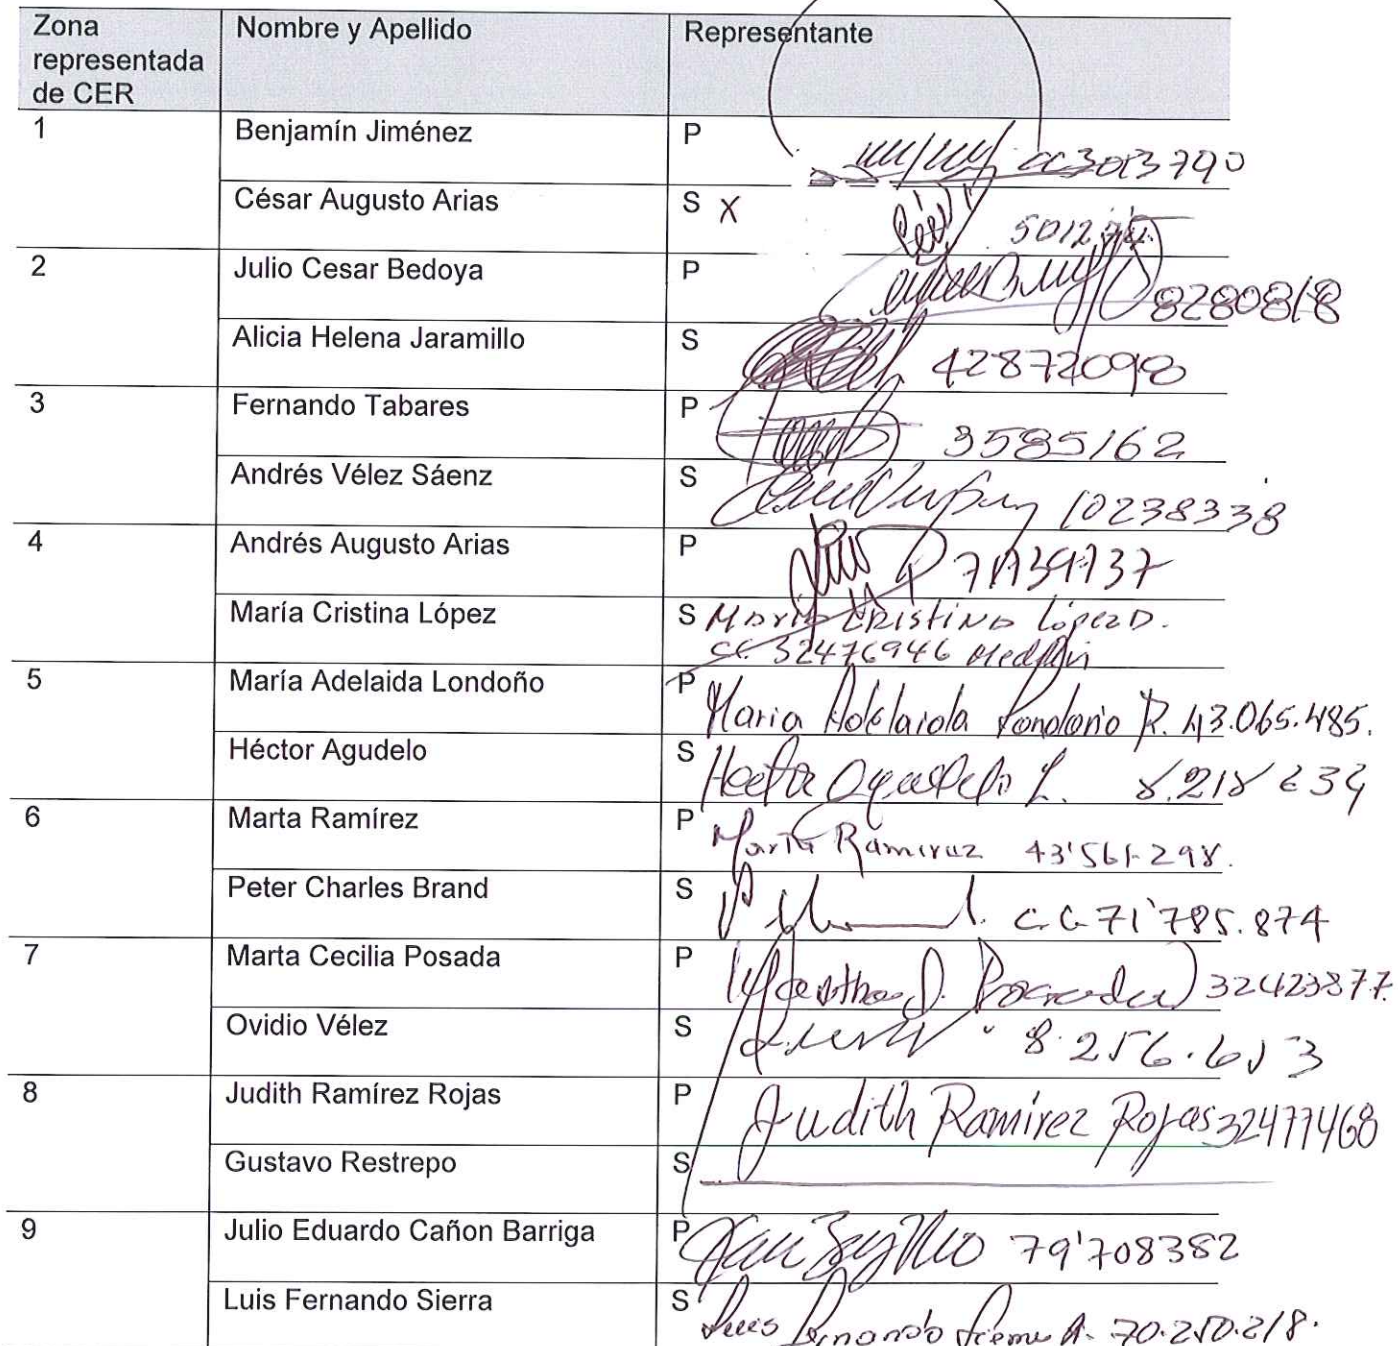 Zona representada de CER Nombre y Apellido Representante
1 Benjamín Jiménez P cc 3013790
César Augusto Arias S X
2 Julio Cesar Bedoya P 8280818
Alicia Helena Jaramillo S 42872098
3 Fernando Tabares P 3585162
Andrés Vélez Sáenz S 10238338
4 Andrés Augusto Arias P
María Cristina López S María Cristina López D.
cc. 32476946 Medellín
5 María Adelaida Londoño P Maria Adelaida Londoño R. 43.065.485.
Héctor Agudelo S Hector Agudelo L. 8.218 634
6 Marta Ramírez P Marta Ramirez 43'561-298.
Peter Charles Brand S C.C. 71'785.874
7 Marta Cecilia Posada P Posada 32423877.
Ovidio Vélez S 8.256.653
8 Judith Ramírez Rojas P Judith Ramírez Rojas 32477468
Gustavo Restrepo S
9 Julio Eduardo Cañon Barriga P 79'708382
Luis Fernando Sierra S Luis Fernando Sierra A. 70.250.218.